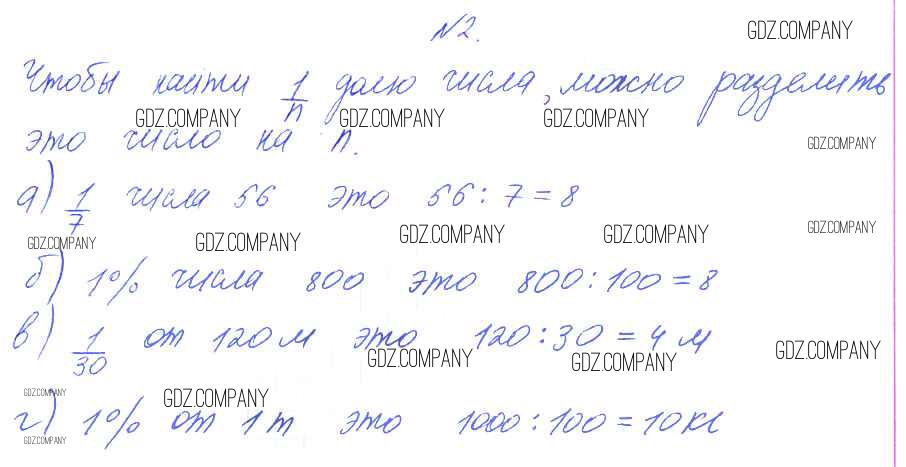 №2.
GDZ.COMPANY
Чтобы найти 1/n долю числа, можно разделить
GDZ.COMPANY GDZ.COMPANY GDZ.COMPANY
это число на n.
GDZ.COMPANY
а) 1/7 числа 56 это 56 : 7 = 8
GDZ.COMPANY GDZ.COMPANY GDZ.COMPANY GDZ.COMPANY GDZ.COMPANY
б) 1% числа 800 это 800 : 100 = 8
в) 1/30 от 120 м это 120 : 30 = 4 м
GDZ.COMPANY GDZ.COMPANY GDZ.COMPANY
GDZ.COMPANY GDZ.COMPANY
г) 1% от 1 т это 1000 : 100 = 10 кг
GDZ.COMPANY